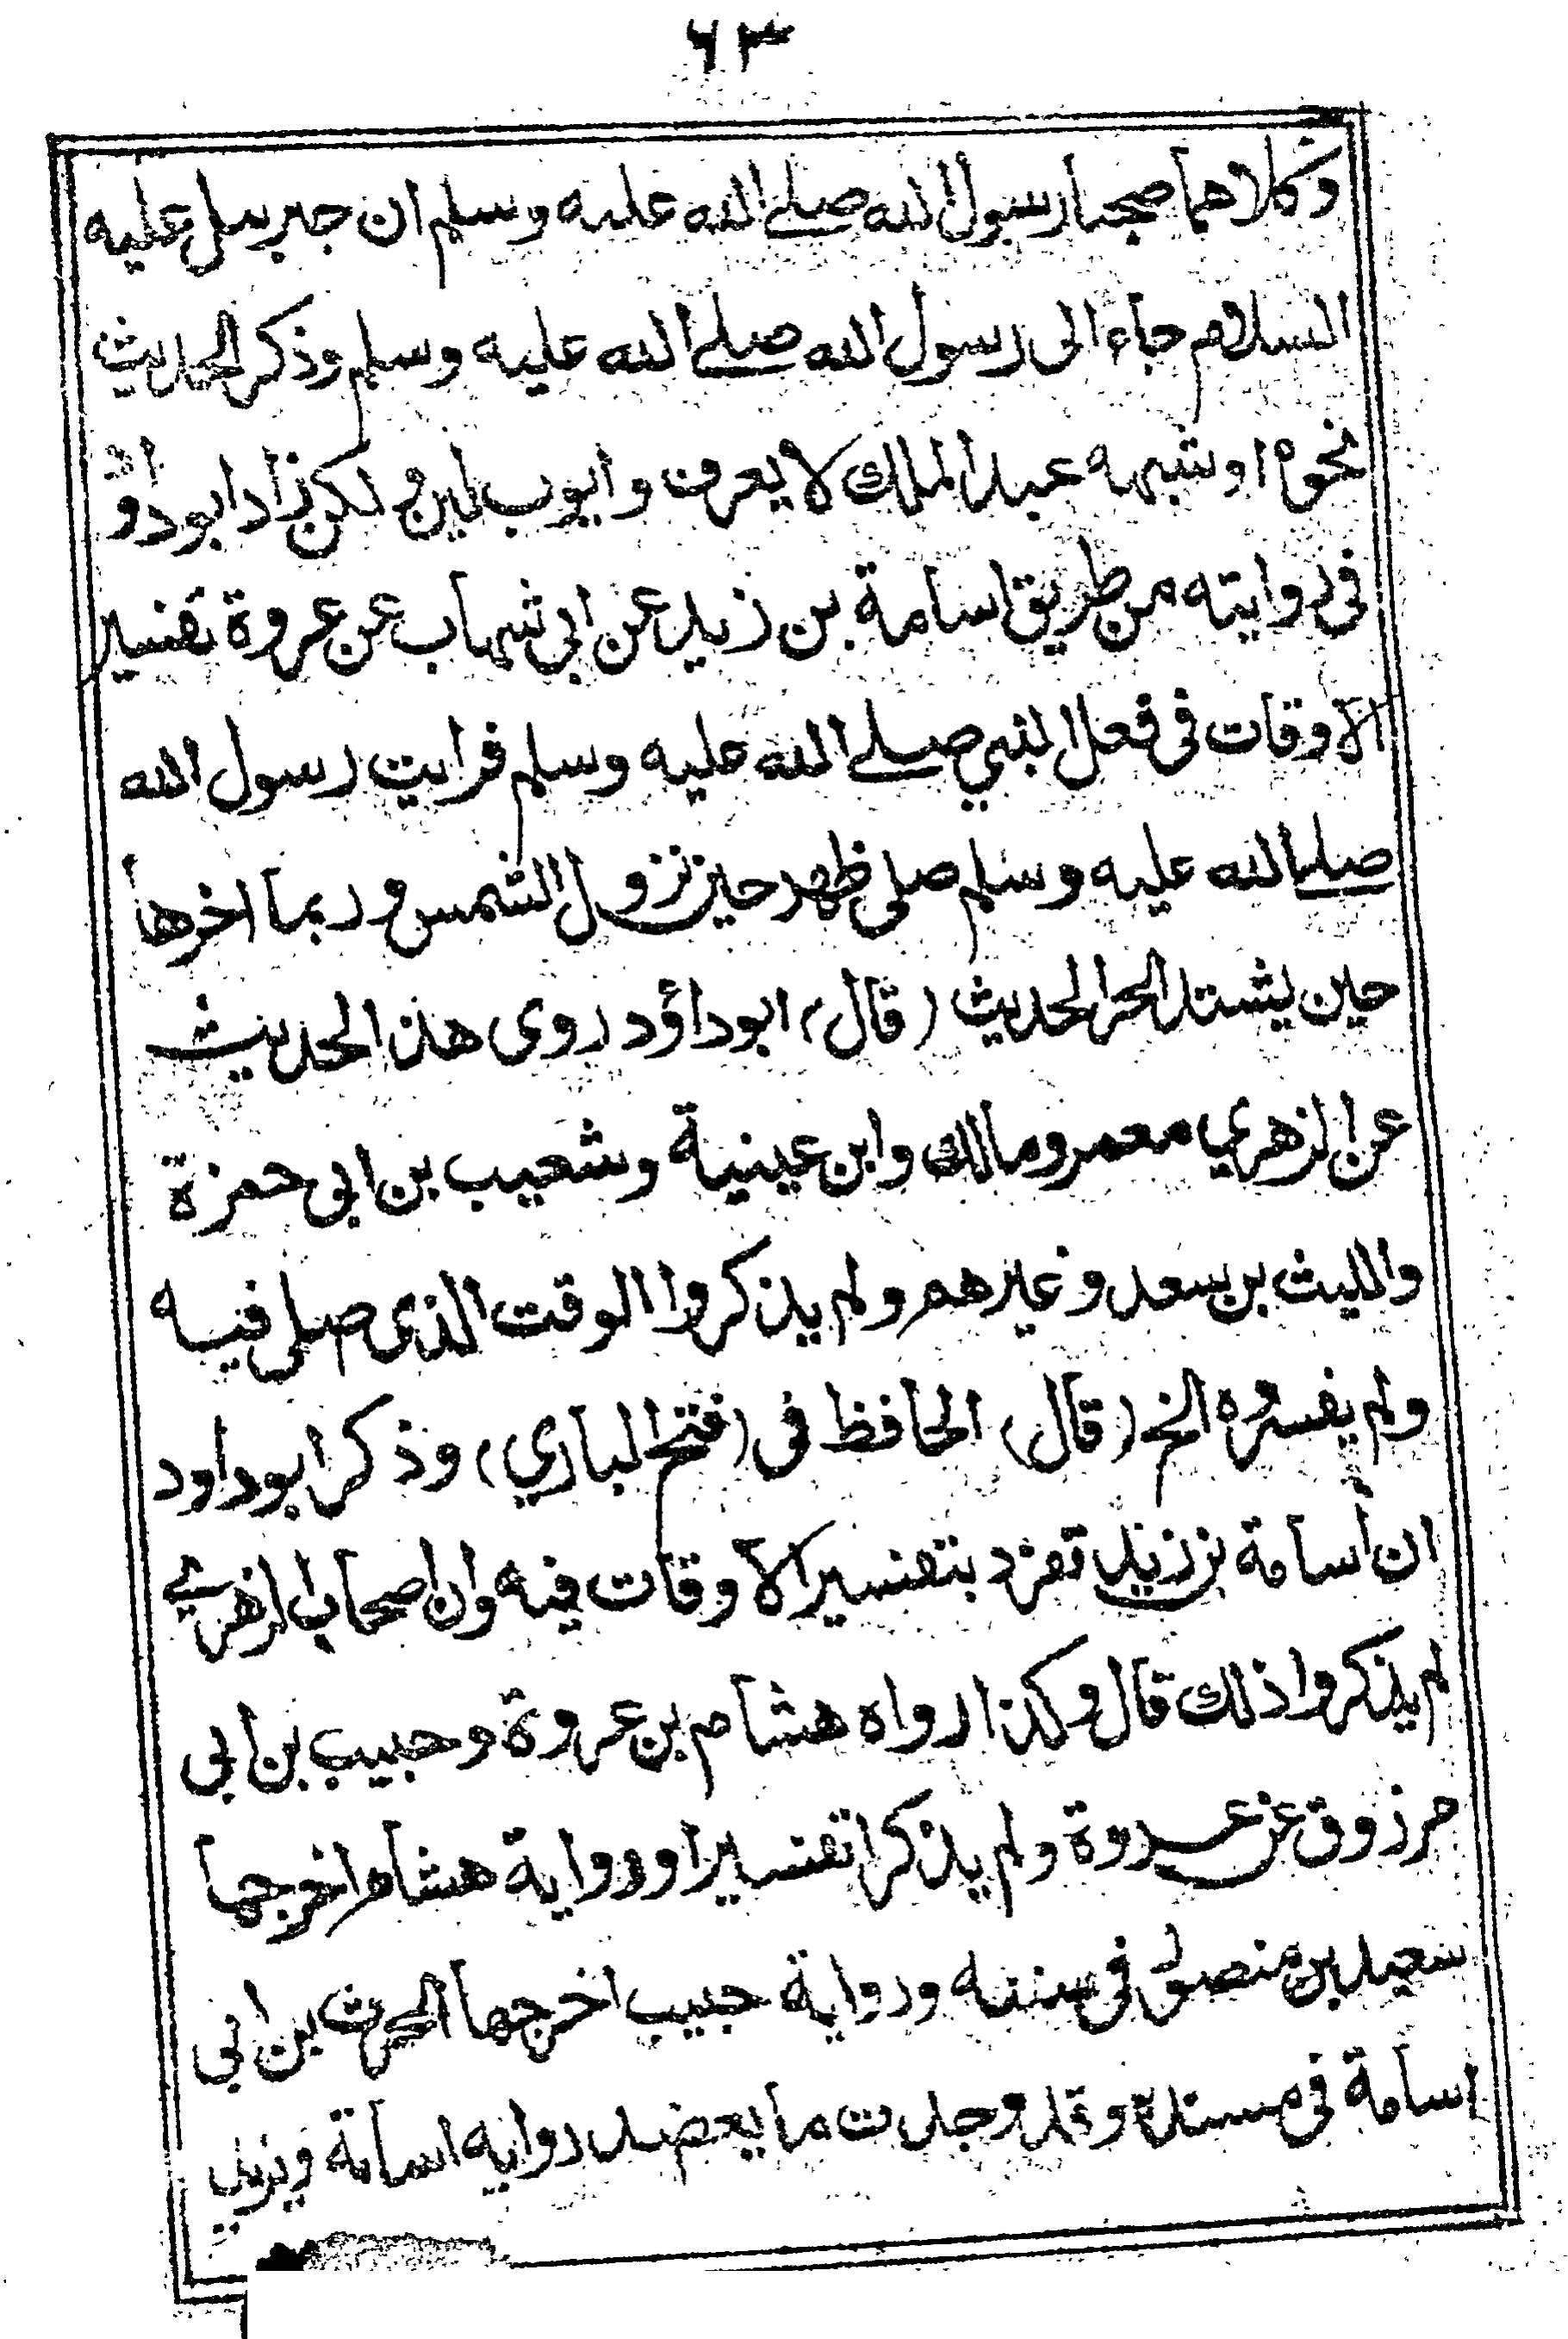 ٦٣
وكلاهما صحبا رسول الله صلى الله عليه وسلم ان جبريل عليه
السلام جاء الى رسول الله صلى الله عليه وسلم وذكر الحديث
نحوه او شبهه عبد الملك لا يعرف وايوب لين ولكن زاد ابوداؤد
في روايته من طريق اسامة بن زيد عن ابى شهاب عن عروة تفسير
الاوقات فى فعل النبي صلى الله عليه وسلم فرايت رسول الله
صلى الله عليه وسلم صلى ظهر حين نزول الشمس وربما اخرها
حين يشتد الحر الحديث (قال) ابوداؤد روى هذ الحديث
عن الزهري معمر ومالك وابن عينية وشعيب بن ابى حمزة
والليث بن سعد وغيرهم ولم يذكروا الوقت الذى صلى فيه
ولم يفسروه الخ (قال) الحافظ فى (فتح الباري) وذكر ابوداود
ان أسامة بن زيد تفرد بتفسير الاوقات فيه وان اصحاب الزهري
لم يذكروا ذلك قال وكذا رواه هشام بن عروة وحبيب بن ابى
مرزوق عن عروة ولم يذكرا تفسيرا ورواية هشام اخرجها
سعيد بن منصور فى سننه ورواية حبيب اخرجها الحرث بن ابى
اسامة فى مسنده وقد وجدت ما يعضد روايه اسامة ويزيد